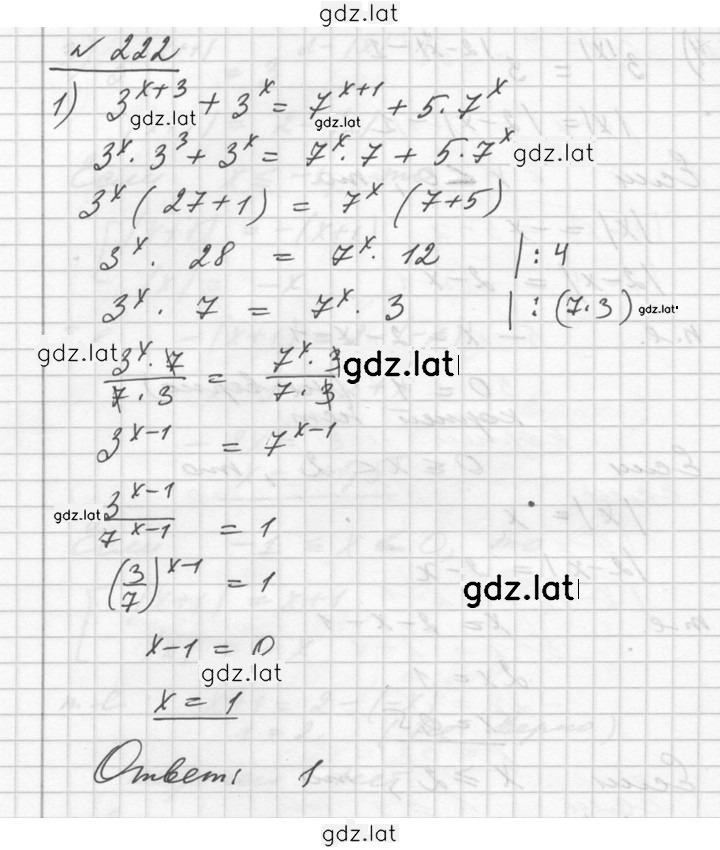 gdz.lat
№ 222
1) 3^(x+3) + 3^x = 7^(x+1) + 5·7^x
gdz.lat gdz.lat
3^x · 3^3 + 3^x = 7^x · 7 + 5·7^x gdz.lat
3^x (27+1) = 7^x (7+5)
3^x · 28 = 7^x · 12 | : 4
3^x · 7 = 7^x · 3 | : (7·3) gdz.lat
gdz.lat (3^x · 7)/(7·3) = (7^x · 3)/(7·3) gdz.lat
3^(x-1) = 7^(x-1)
gdz.lat 3^(x-1)/7^(x-1) = 1
(3/7)^(x-1) = 1 gdz.lat
x-1 = 0
gdz.lat
x = 1
Ответ: 1
gdz.lat